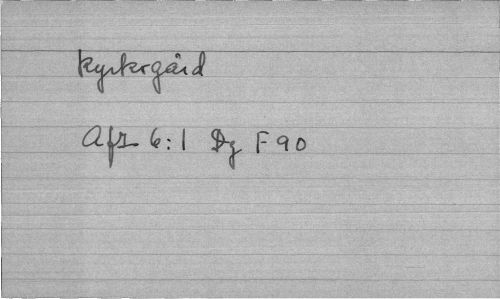 kyrkogård
Afz 6:1 Dg F 90